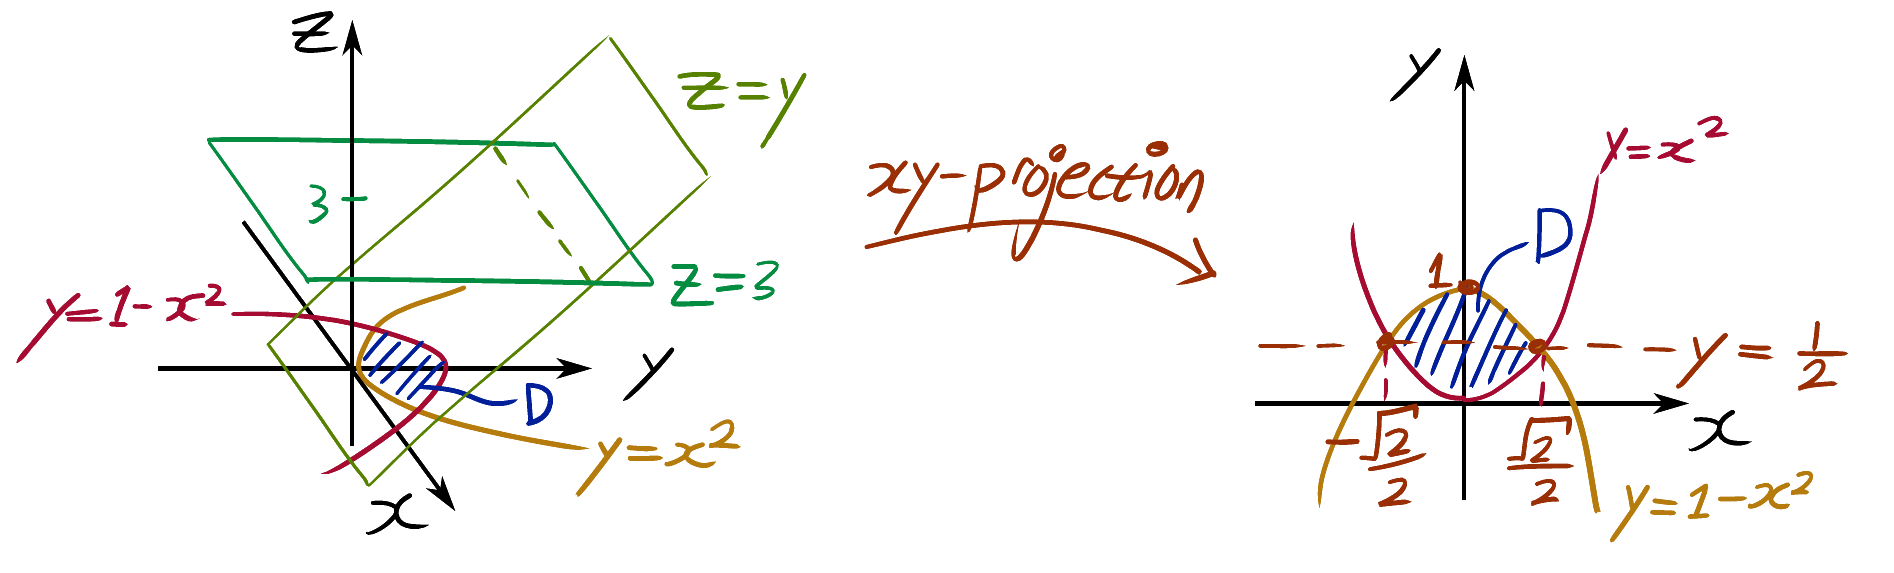 z
z=y
3
z=3
y=1-x²
y
D
y=x²
x
xy-projection
y
y=x²
D
1
y=1/2
x
-√2/2
√2/2
y=1-x²